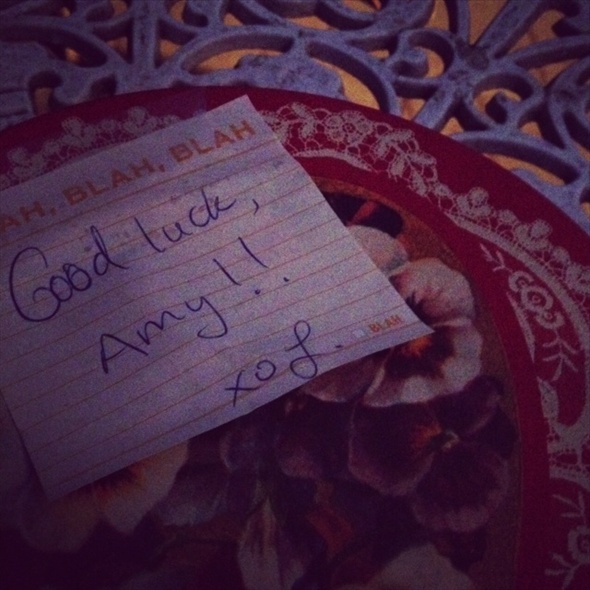 AH, BLAH, BLAH
Good luck,
Amy!!
xo L.
BLAH